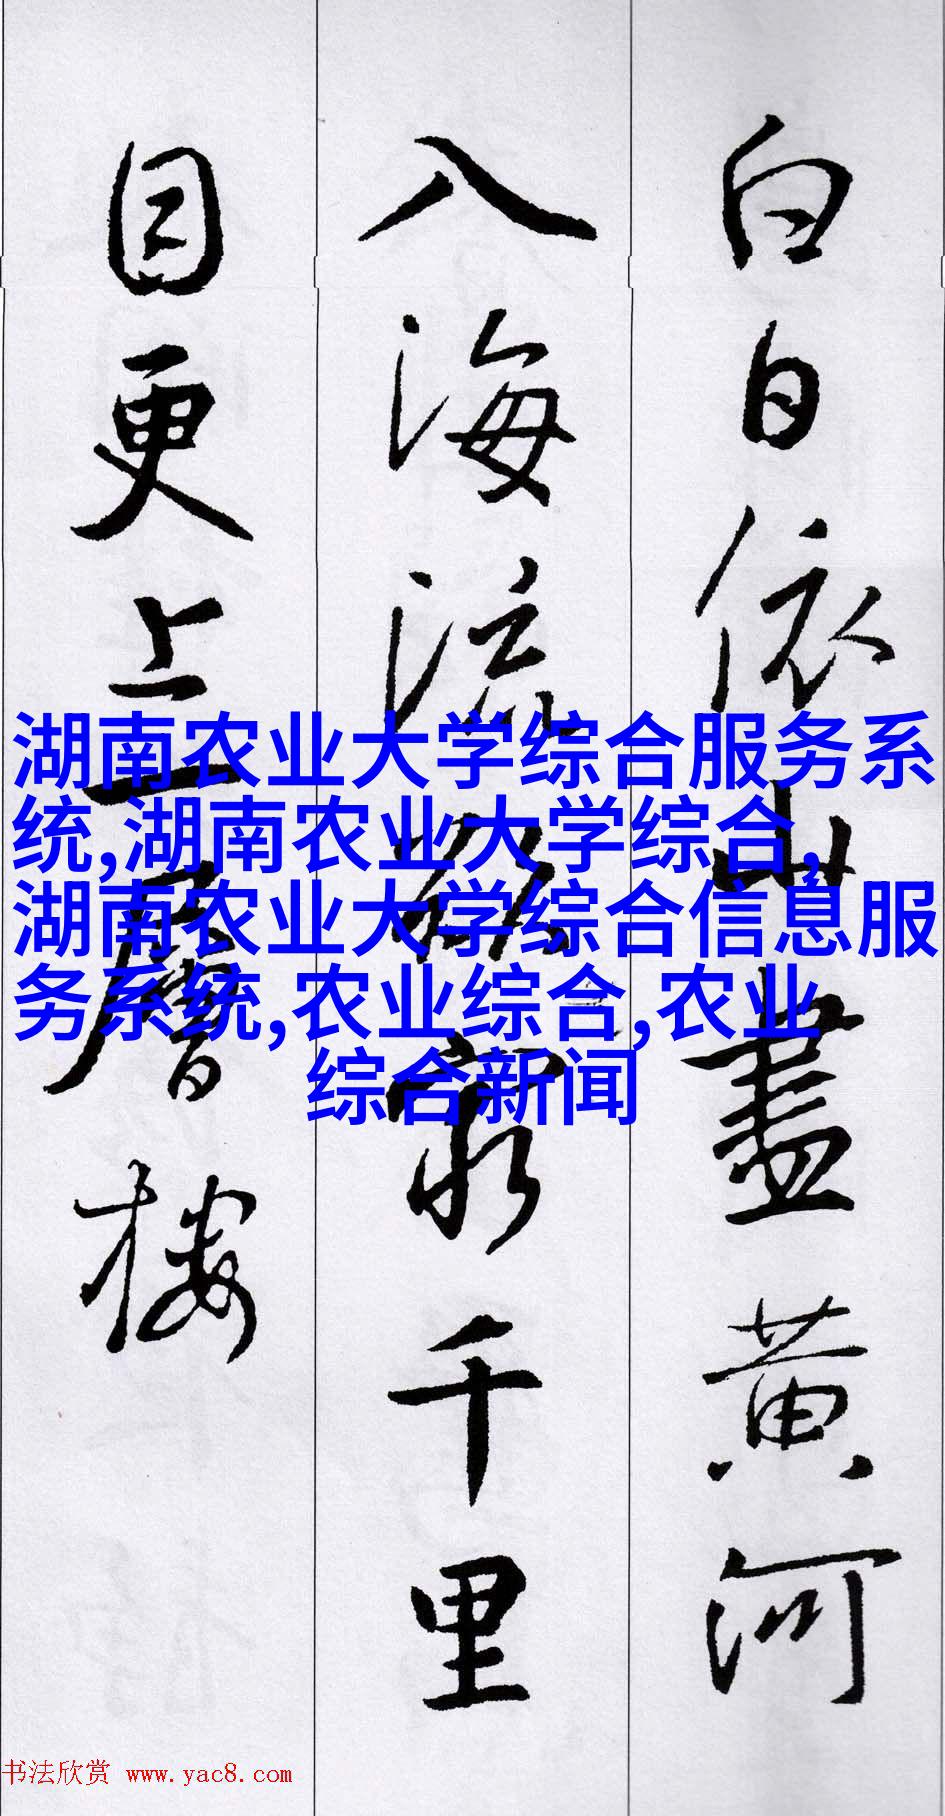 白日依山盡黄河
入海流欲窮千里
目更上層樓
湖南农业大学综合服务系
统,湖南农业大学综合,
湖南农业大学综合信息服
务系统,农业综合,农业
综合新闻
书法欣赏 www.yac8.com